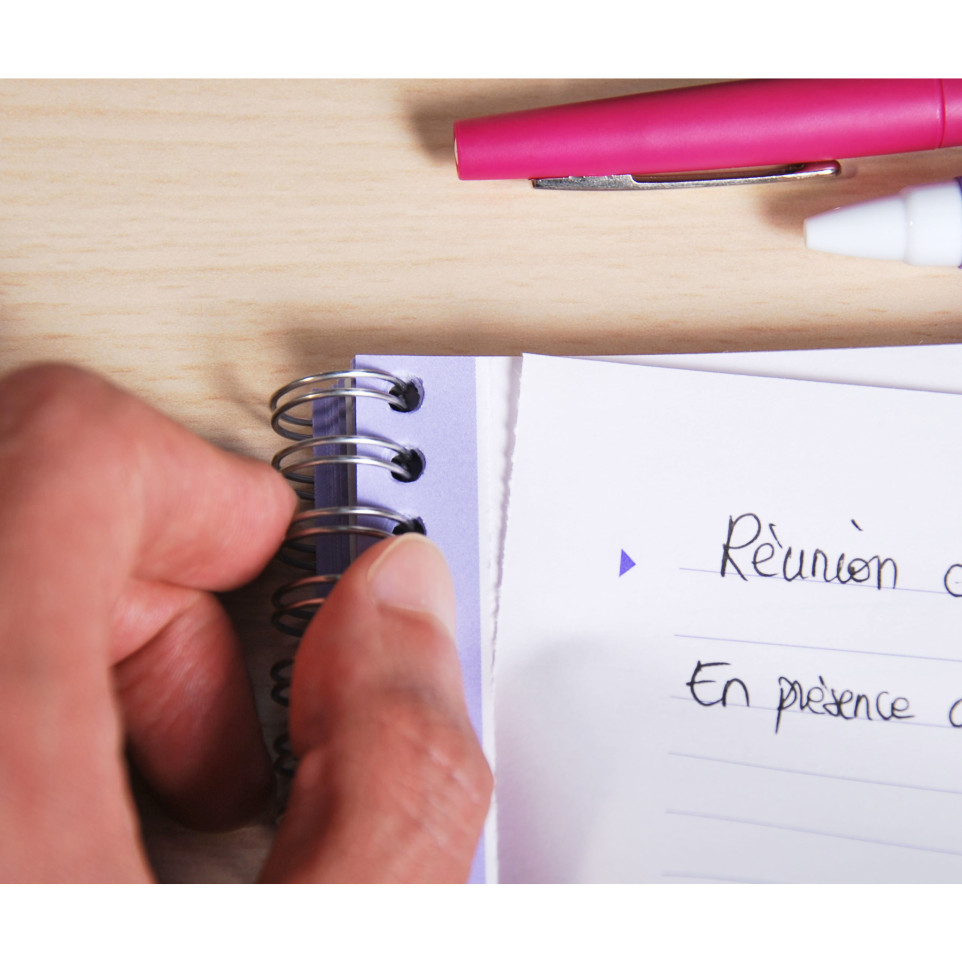 Réunion
En présence